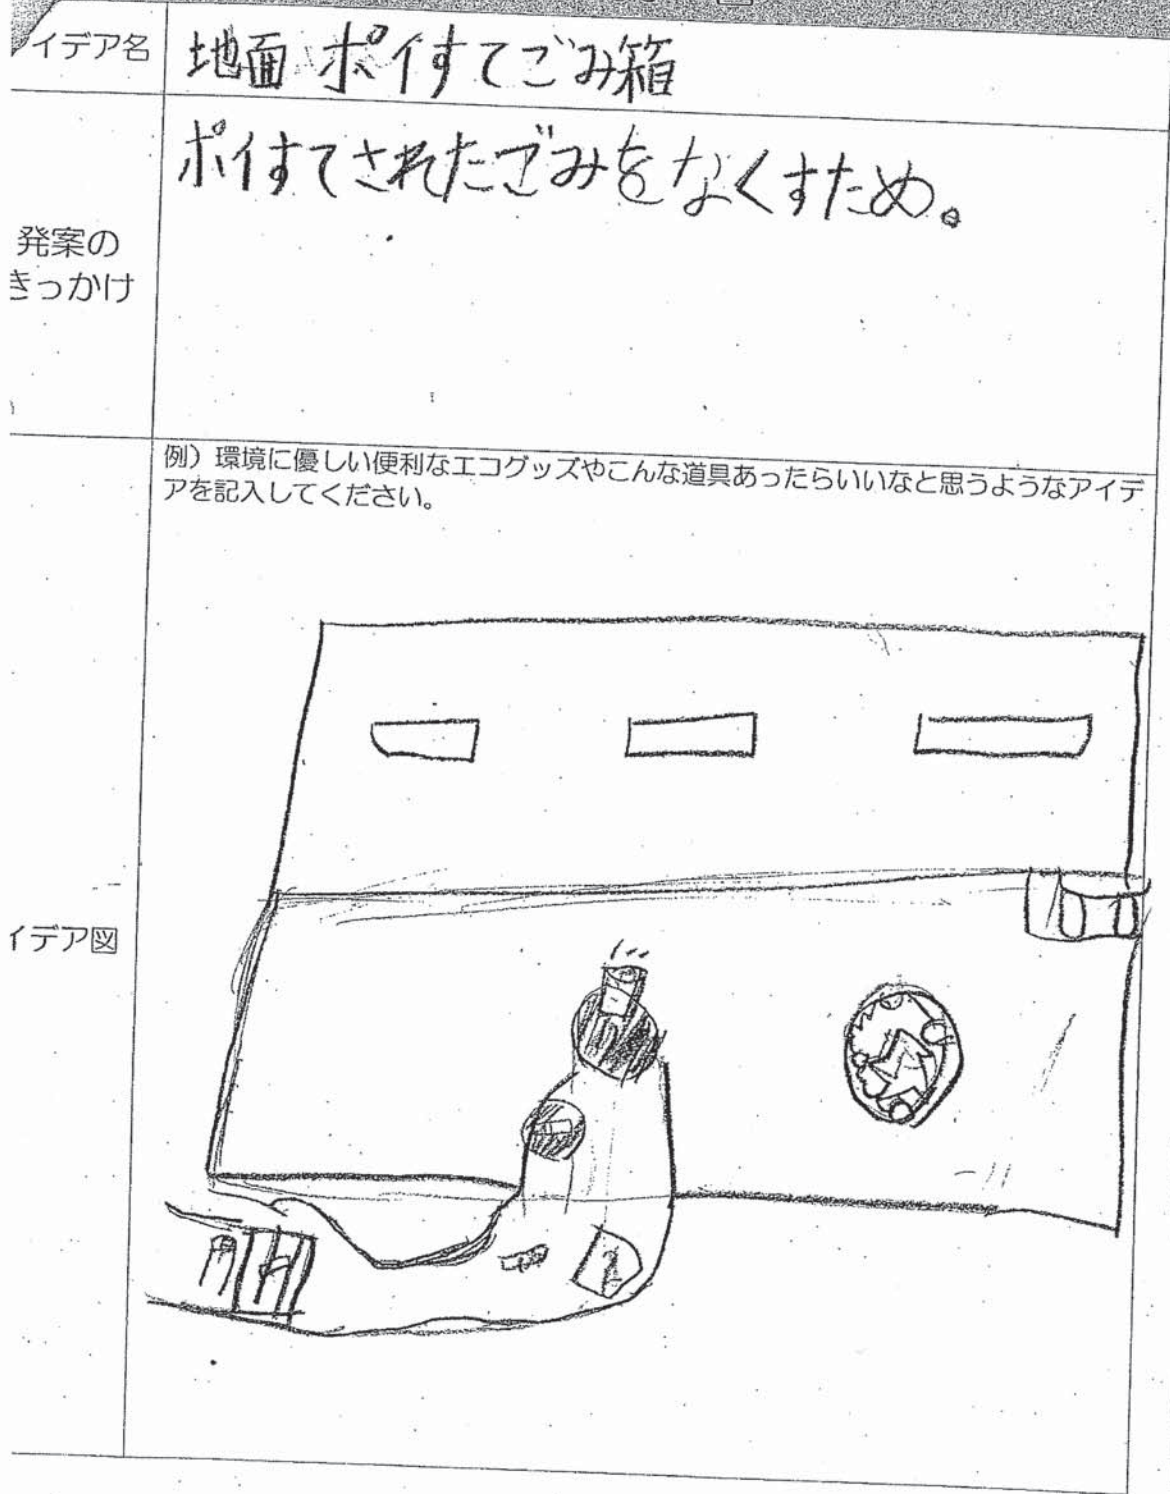 イデア名
地面 ポイすてごみ箱
発案の
きっかけ
ポイすてされたごみをなくすため。
例）環境に優しい便利なエコグッズやこんな道具あったらいいなと思うようなアイデ
アを記入してください。
イデア図